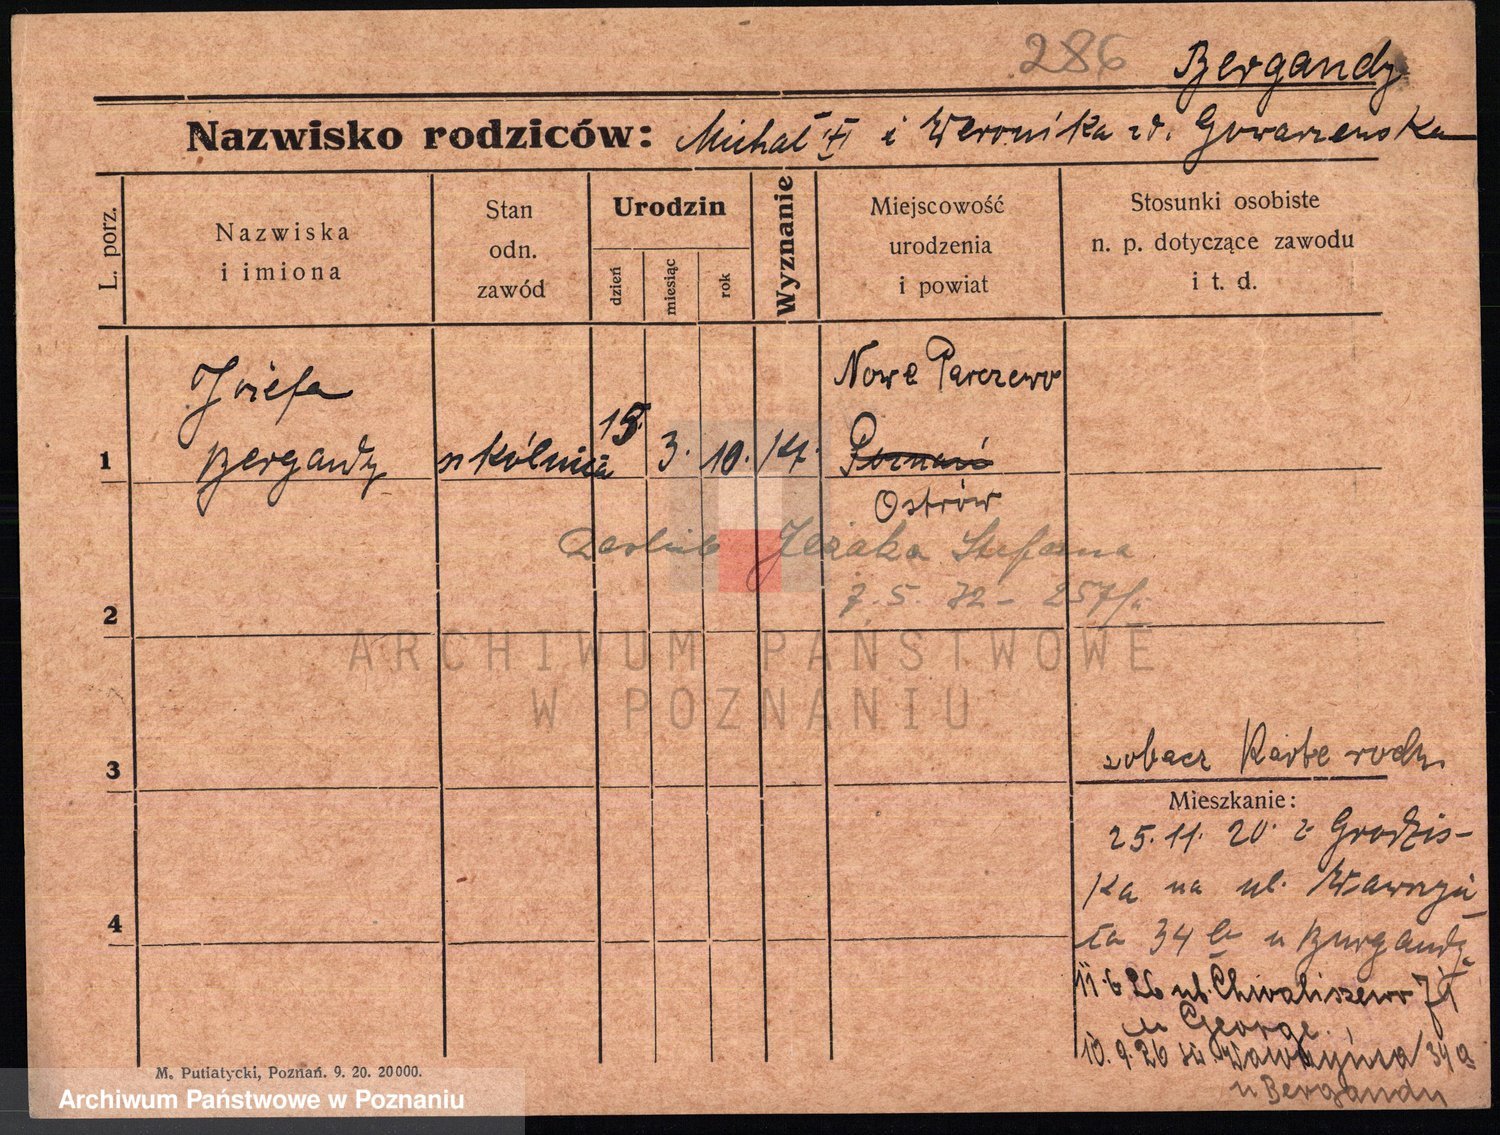 286
Bergandy
Nazwisko rodziców: Michał i Weronika
L. porz.
Nazwiska
i imiona
Stan
odn.
zawód
Urodzin
dzień
miesiąc
rok
Wyznanie
Miejscowość
urodzenia
i powiat
Stosunki osobiste
n. p. dotyczące zawodu
i t. d.
1
Józefa
Bergandy
szkólnica
15. 3. 10. kt.
Nowe Parczewo
Poznań
Ostrów
2
Jeżaka Stefana
7. 5. 32 - 257
ARCHIWUM PAŃSTWOWE
W POZNANIU
3
zobacz Kartę rodz.
Mieszkanie:
25. 11. 20. z Grodzis-
ka na ul. Wawrzyń
ca 34 a u Bergandy
11. 6. 26 ul. Chwaliszewo 71
u George.
10. 9. 26 Wawrzyńca 34a
u Bergandy
4
M. Putiatycki, Poznań. 9. 20. 20000.
Archiwum Państwowe w Poznaniu